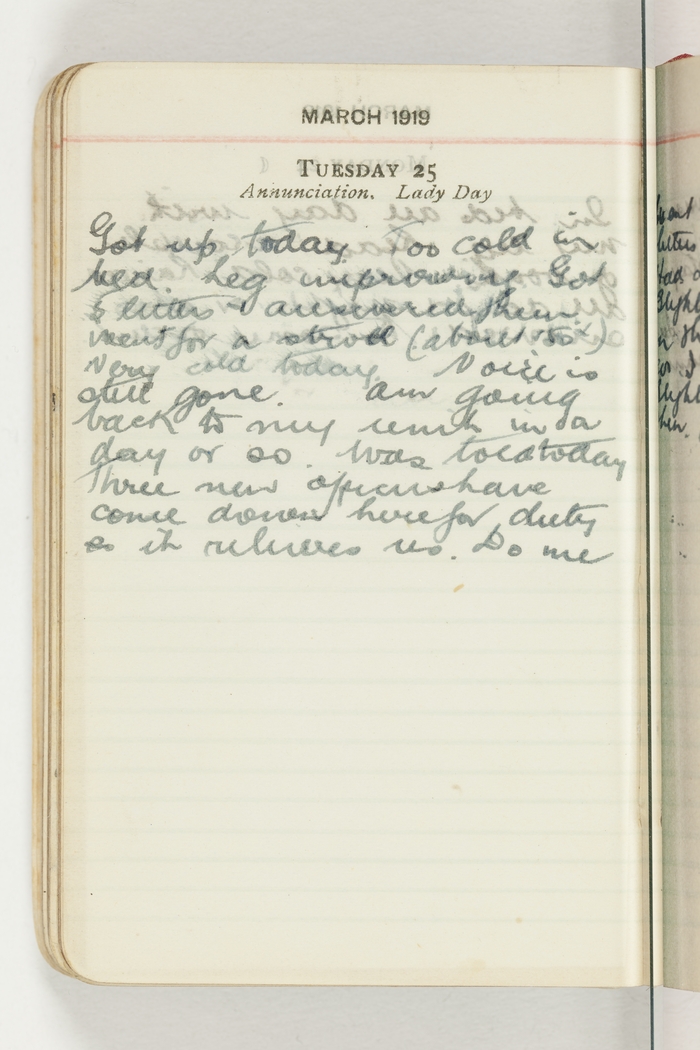 MARCH 1919
TUESDAY 25
Annunciation. Lady Day
Got up today Too cold in
bed. Leg improving Got
5 letters & answered them
went for a stroll (about
Very cold today. Voice is
still gone. Am going
back to my unit in a
day or so. Was told today
three new officers have
come down here for duty
so it relieves us. Do me